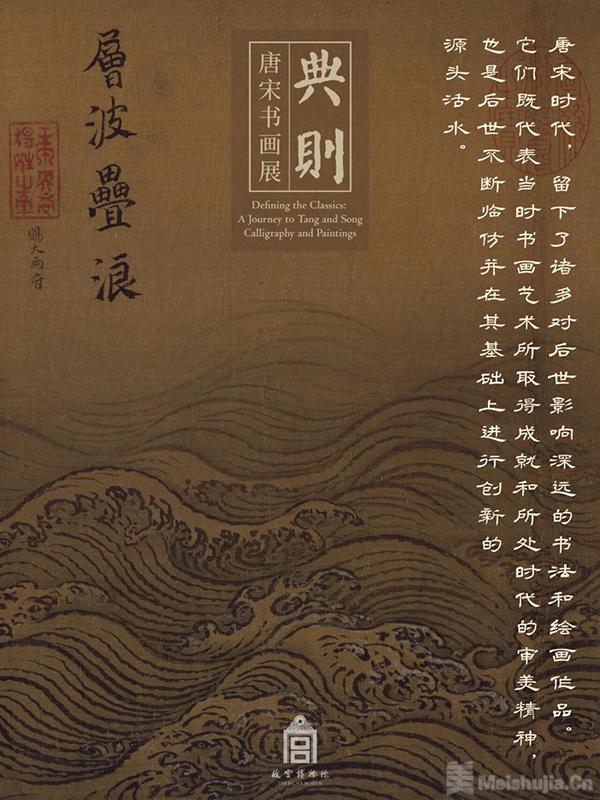 唐宋时代，留下了诸多对后世影响深远的书法和绘画作品。
它们既代表当时书画艺术所取得成就和所处时代的审美精神，
也是后世不断临仿并在其基础上进行创新的
源头活水。
典則
唐宋书画展
Defining the Classics:
A Journey to Tang and Song
Calligraphy and Paintings
層波疊浪
賜大兩府
故宫博物院
THE PALACE MUSEUM
美 Meishujia.Cn